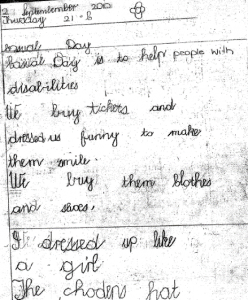 2 September 200
Thursday 21-8
Day
Day is to help people with
disabilities
We buy tickets and
dressed us funny to make
them smile
We buy them blothes
and shoes.
I dressed up like
a girl
The hat